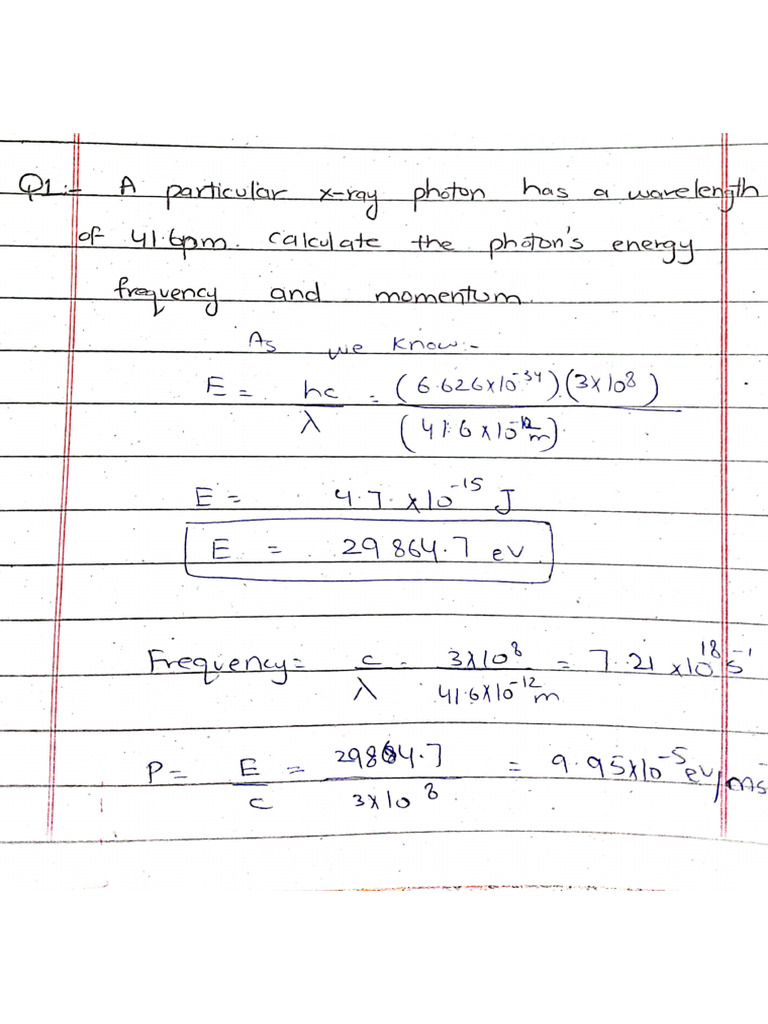 Q1:- A particular x-ray photon has a wavelength
of 41.6pm. calculate the photon's energy
frequency and momentum.
As we know:-
E = hc/λ = (6.626x10^-34)(3x10^8)/(41.6x10^-12 m)
E = 4.7 x10^-15 J
E = 29864.7 ev
Frequency = c/λ = 3x10^8/41.6x10^-12 m = 7.21 x10^18 s^-1
P = E/c = 29864.7/3x10^8 = 9.95x10^-5 ev/ms^-